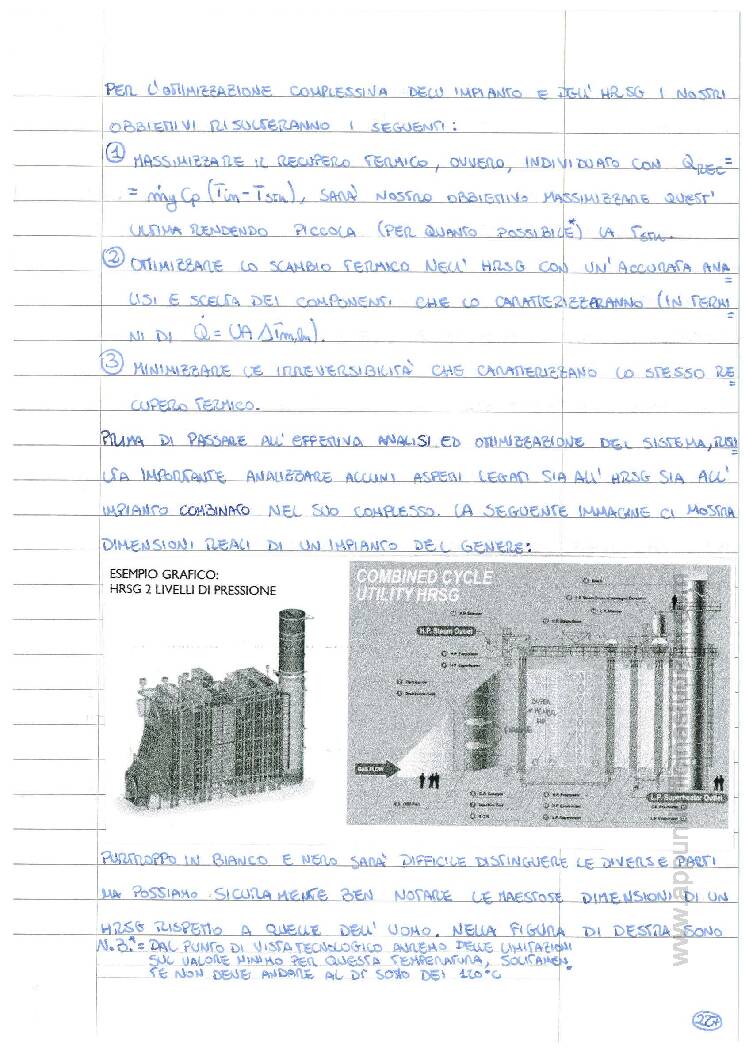 PER L'OTTIMIZZAZIONE COMPLESSIVA DELL'IMPIANTO E DELL'HRSG I NOSTRI
OBBIETTIVI RISULTERANNO I SEGUENTI:
① MASSIMIZZARE IL RECUPERO TERMICO, OVVERO, INDIVIDUATO CON Q̇REC =
= ṁg Cp (Tin - Tstk), SARÀ NOSTRO OBBIETTIVO MASSIMIZZARE QUEST'
ULTIMA RENDENDO PICCOLA (PER QUANTO POSSIBILE*) LA Tstk.
② OTTIMIZZARE LO SCAMBIO TERMICO NELL'HRSG CON UN'ACCURATA ANA=
LISI E SCELTA DEI COMPONENTI CHE LO CARATTERIZZERANNO (IN TERMI=
NI DI Q̇ = UA ΔTm,ln).
③ MINIMIZZARE LE IRREVERSIBILITÀ CHE CARATTERIZZANO LO STESSO RE=
CUPERO TERMICO.
PRIMA DI PASSARE ALL'EFFETTIVA ANALISI ED OTTIMIZZAZIONE DEL SISTEMA, RISU=
LTA IMPORTANTE ANALIZZARE ALCUNI ASPETTI LEGATI SIA ALL'HRSG SIA ALL'
IMPIANTO COMBINATO NEL SUO COMPLESSO. LA SEGUENTE IMMAGINE CI MOSTRA
DIMENSIONI REALI DI UN IMPIANTO DEL GENERE:
ESEMPIO GRAFICO:
HRSG 2 LIVELLI DI PRESSIONE
COMBINED CYCLE
UTILITY HRSG
H.P. Steam Outlet
GAS FLOW
L.P. Superheater Outlet
PURTROPPO IN BIANCO E NERO SARÀ DIFFICILE DISTINGUERE LE DIVERSE PARTI
MA POSSIAMO SICURAMENTE BEN NOTARE LE MAESTOSE DIMENSIONI DI UN
HRSG RISPETTO A QUELLE DELL'UOMO. NELLA FIGURA DI DESTRA SONO
N.B.* = DAL PUNTO DI VISTA TECNOLOGICO AVREMO DELLE LIMITAZIONI
SUL VALORE MINIMO PER QUESTA TEMPERATURA, SOLITAMEN=
TE NON DEVE ANDARE AL DI SOTTO DEI 120°C
227